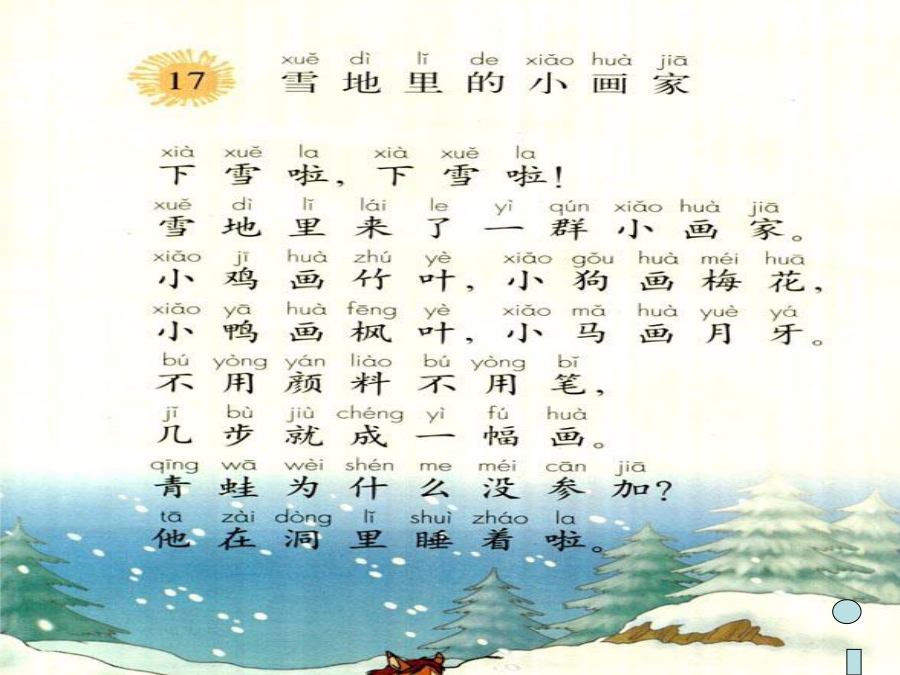 17
xuě dì lǐ de xiǎo huà jiā
雪地里的小画家
xià xuě la xià xuě la
下雪啦，下雪啦！
xuě dì lǐ lái le yì qún xiǎo huà jiā
雪地里来了一群小画家。
xiǎo jī huà zhú yè xiǎo gǒu huà méi huā
小鸡画竹叶，小狗画梅花，
xiǎo yā huà fēng yè xiǎo mǎ huà yuè yá
小鸭画枫叶，小马画月牙。
bú yòng yán liào bú yòng bǐ
不用颜料不用笔，
jǐ bù jiù chéng yì fú huà
几步就成一幅画。
qīng wā wèi shén me méi cān jiā
青蛙为什么没参加？
tā zài dòng lǐ shuì zháo la
他在洞里睡着啦。